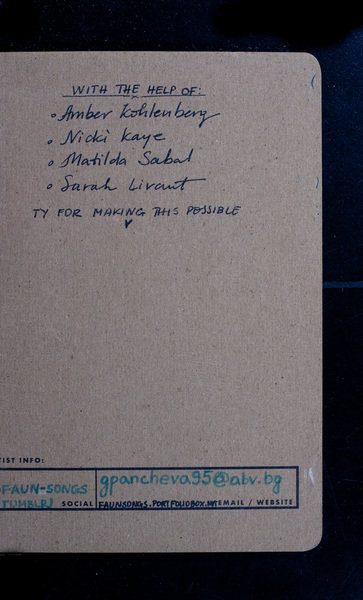 WITH THE HELP OF:
Amber Kohlenberg
Nicki Kaye
Matilda Sabal
Sarah Livant
TY FOR MAKING THIS POSSIBLE
IST INFO:
FAUN-SONGS
(TUMBLR) SOCIAL
gpancheva95@abv.bg
FAUNSONGS.PORTFOLIOBOX.NET EMAIL / WEBSITE